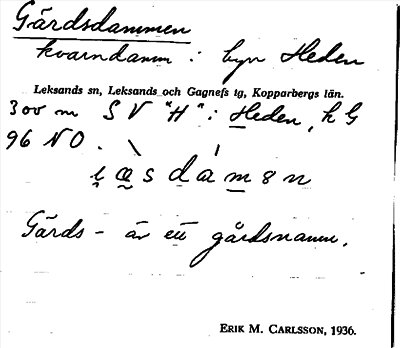 Gärdsdammen
kvarndamm i byn Heden
Leksands sn, Leksands och Gagnefs tg, Kopparbergs län.
300 m SV "H" i Heden, k G
96 NO.
Gärds- är ett gårdsnamn.
ERIK M. CARLSSON, 1936.